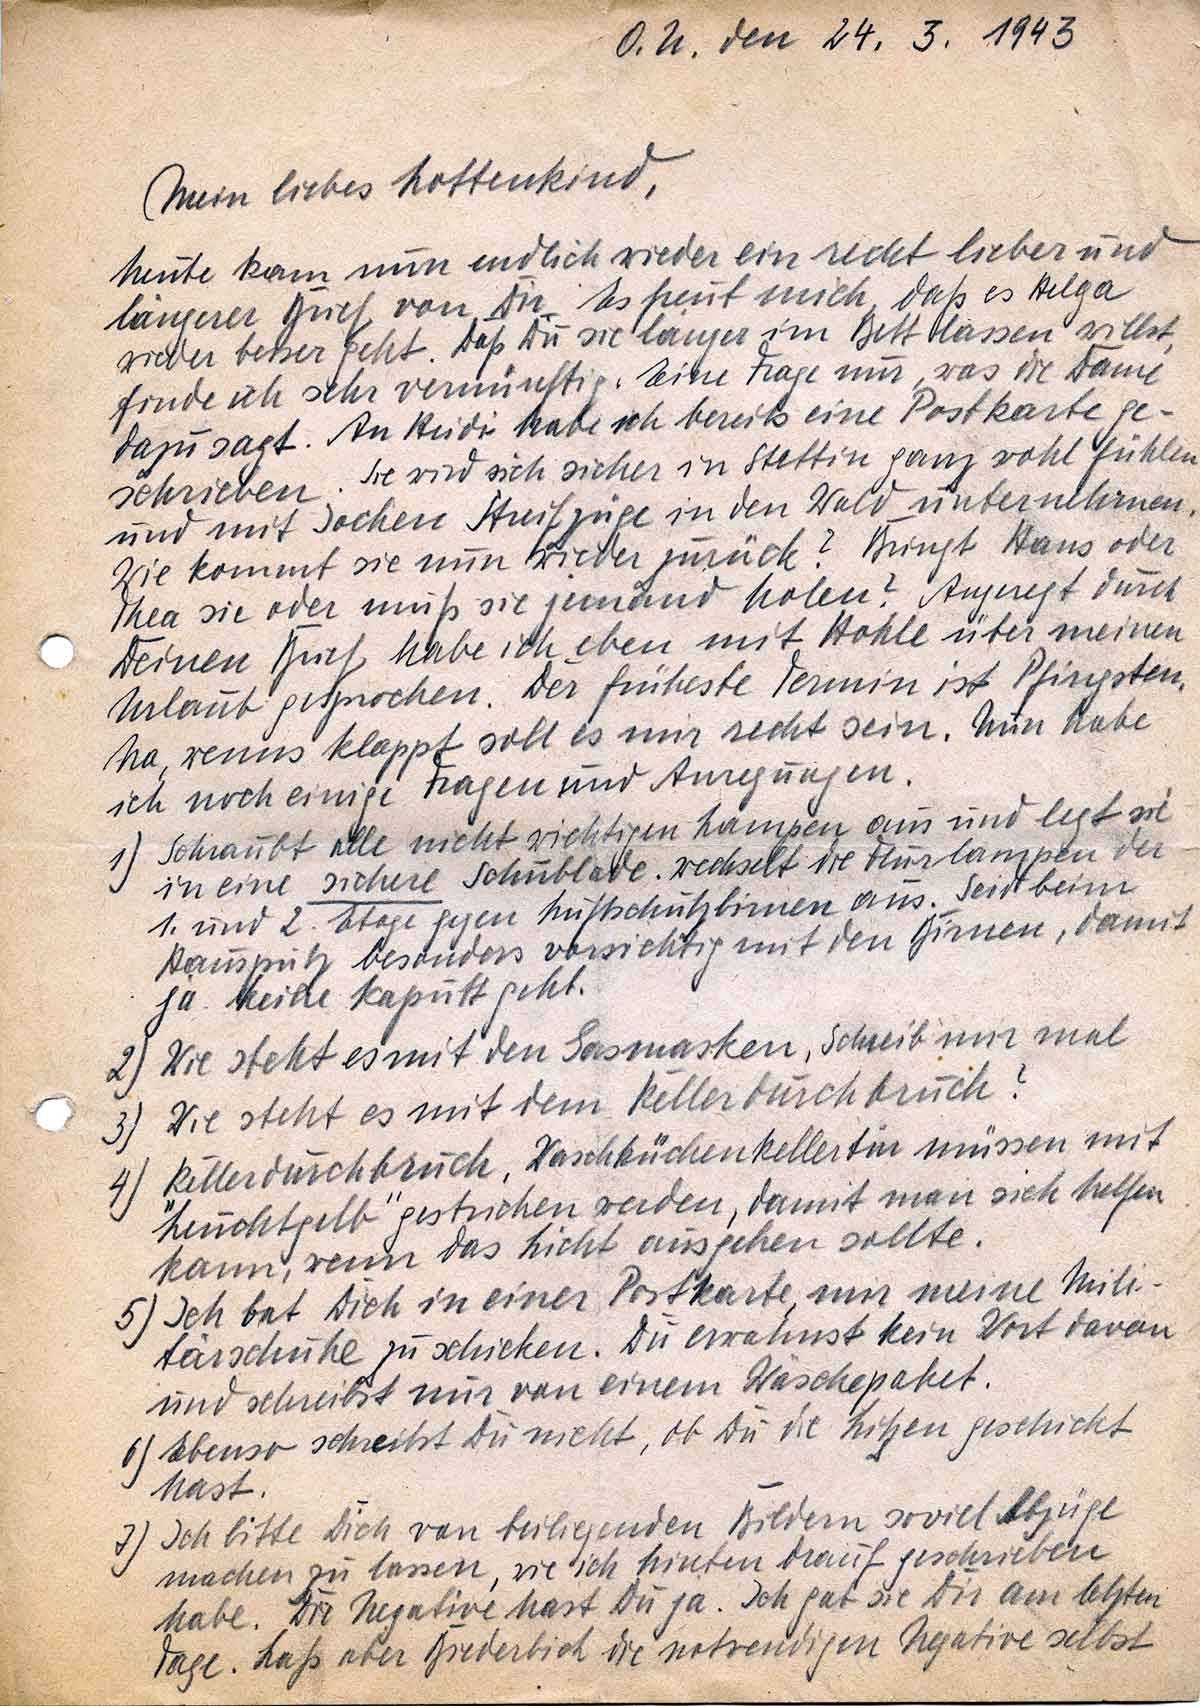 O.U. den 24. 3. 1943
Mein liebes Lottenkind,
heute kam nun endlich wieder ein recht lieber und
längerer Brief von Dir. Es freut mich, daß es Helga
wieder besser geht. Daß Du sie länger im Bett lassen willst,
finde ich sehr vernünftig. Eine Frage nur, was die Dame
dazu sagt. An Heidi habe ich bereits eine Postkarte ge-
schrieben. Sie wird sich sicher in Stettin ganz wohl fühlen
und mit Jochen Streifzüge in den Wald unternehmen.
Wie kommt sie nun wieder zurück? Bringt Hans oder
Thea sie oder muß sie jemand holen? Angeregt durch
Deinen Brief habe ich eben mit Hohle über meinen
Urlaub gesprochen. Der früheste Termin ist Pfingsten.
Na, wenns klappt soll es mir recht sein. Nun habe
ich noch einige Fragen und Anregungen.
1) Schraubt alle nicht wichtigen Lampen aus und legt sie
in eine sichere Schublade. wechselt die Flurlampen der
1. und 2. Etage gegen Luftschutzbirnen aus. Seid beim
Hausputz besonders vorsichtig mit den Birnen, damit
ja keine kaputt geht.
2) Wie steht es mit den Gasmasken, Schreib mir mal
3) Wie steht es mit dem Kellerdurchbruch?
4) Kellerdurchbruch, Waschküchenkellertür müssen mit
"Leuchtgelb" gestrichen werden, damit man sich helfen
kann, wenn das Licht ausgehen sollte.
5) Ich bat Dich in einer Postkarte, mir meine Mili-
tärschuhe zu schicken. Du erwähnst kein Wort davon
und schreibst nur von einem Wäschepaket.
6) Ebenso schreibst Du nicht, ob Du die Litzen geschickt
hast.
7) Ich bitte Dich von beiliegenden Bildern soviel Abzüge
machen zu lassen, wie ich hinten drauf geschrieben
habe. Die Negative hast Du ja. Ich gab sie Dir am letzten
Tage. Laß aber Biederbick die notwendigen Negative selbst